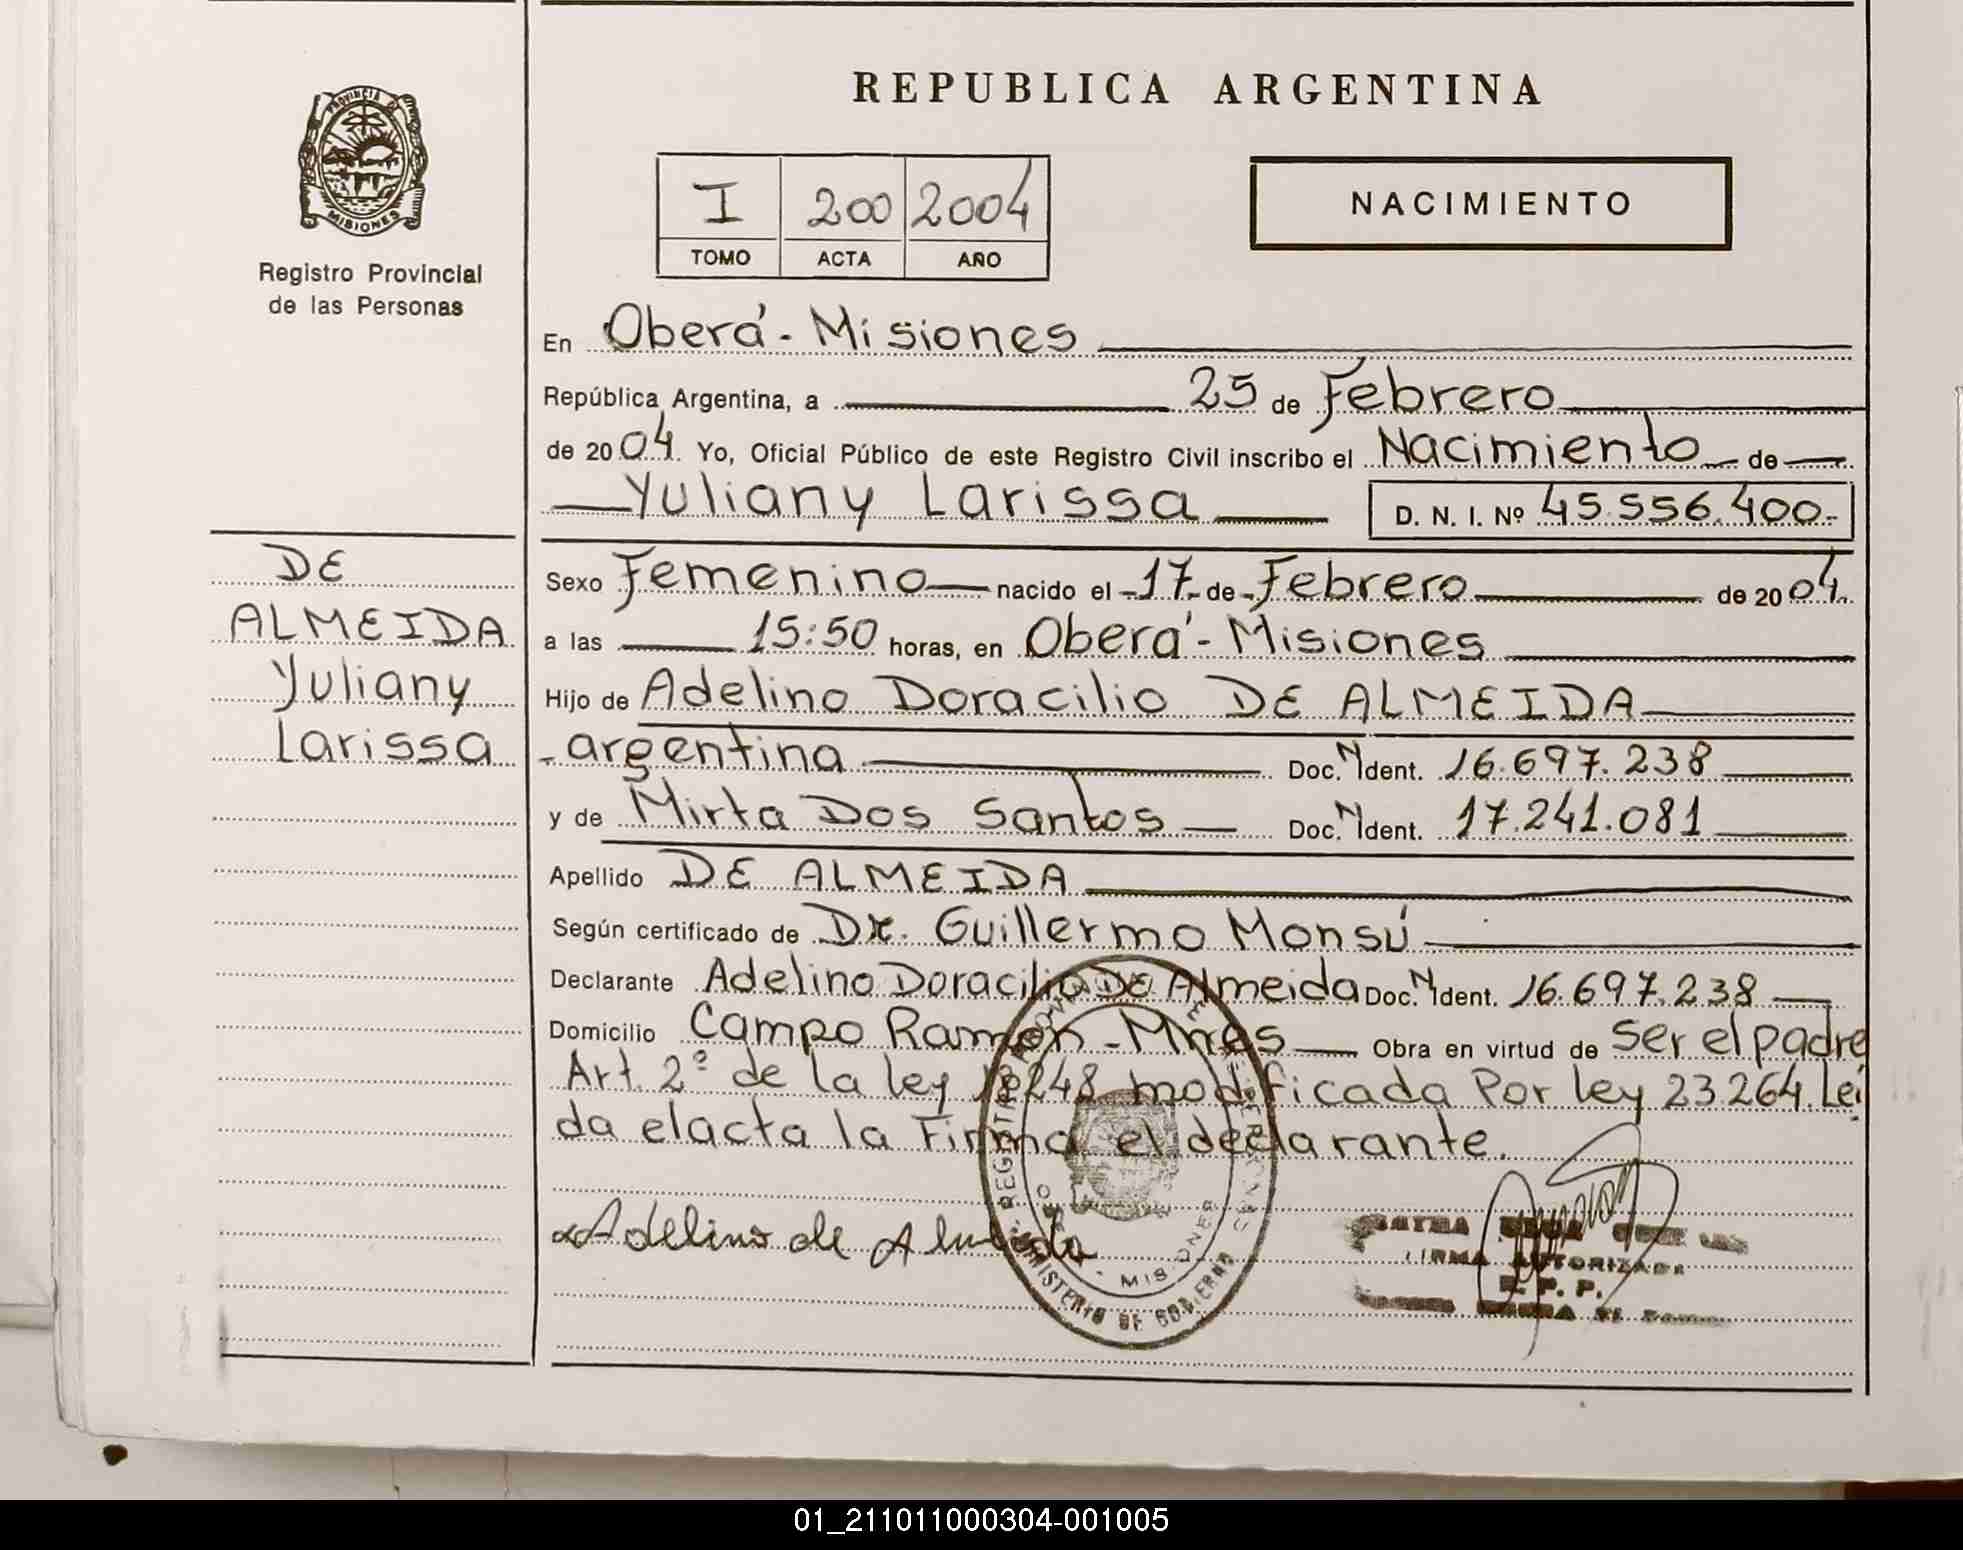 REPUBLICA ARGENTINA
PROVINCIA DE
MISIONES
Registro Provincial
de las Personas
I 200 2004
TOMO ACTA AÑO
NACIMIENTO
En Oberá - Misiones
República Argentina, a 25 de Febrero
de 2004. Yo, Oficial Público de este Registro Civil inscribo el Nacimiento de
Yuliany Larissa D. N. I. Nº 45.556.400.-
DE
ALMEIDA
Yuliany
Larissa
Sexo Femenino nacido el 17 de Febrero de 2004.
a las 15:50 horas, en Oberá - Misiones
Hijo de Adelino Doracilio DE ALMEIDA
argentina Doc. N Ident. 16.697.238
y de Mirta Dos Santos Doc. N Ident. 17.241.081
Apellido DE ALMEIDA
Según certificado de Dr. Guillermo Monsú
Declarante Adelino Doracilio DE Almeida Doc. N Ident. 16.697.238
Domicilio Campo Ramón - Mnes Obra en virtud de ser el padre
Art. 2º de la ley 18248 modificada Por ley 23264. Leí
da el acta la Firma el declarante.
Adelino de Almeida
MINISTERIO DE GOBIERNO
FIRMA AUTORIZADA
R. P. P.
01_211011000304-001005